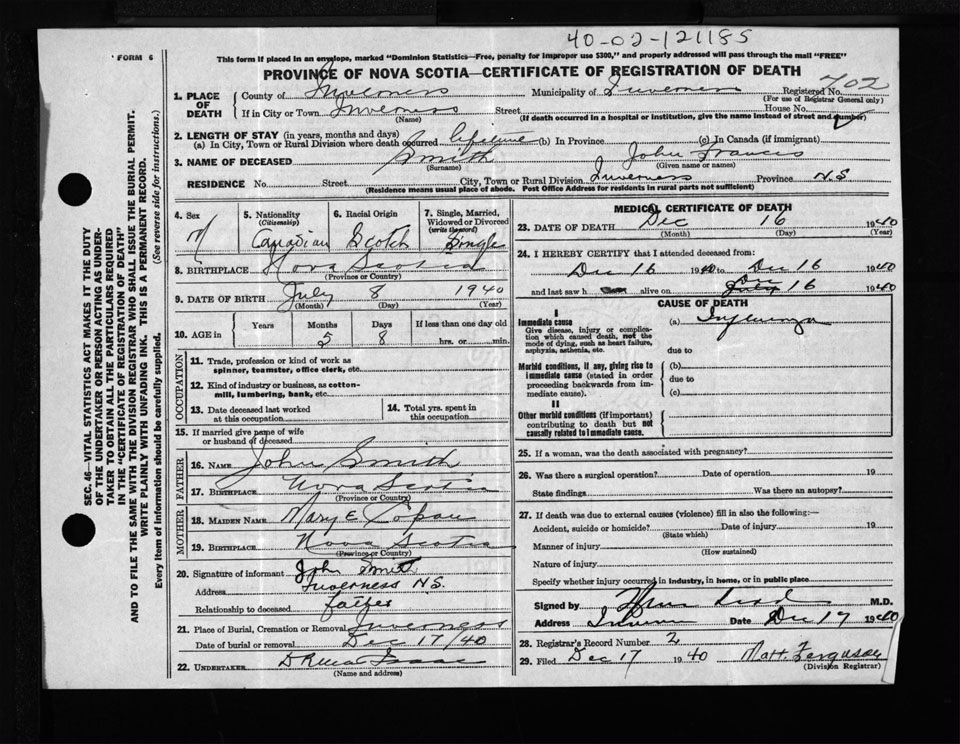 40-02-121185
FORM 6
This form if placed in an envelope, marked "Dominion Statistics—Free, penalty for improper use $300," and properly addressed will pass through the mail "FREE"
PROVINCE OF NOVA SCOTIA—CERTIFICATE OF REGISTRATION OF DEATH
SEC. 46—VITAL STATISTICS ACT MAKES IT THE DUTY
OF THE UNDERTAKER OR PERSON ACTING AS UNDER-
TAKER TO OBTAIN ALL THE PARTICULARS REQUIRED
IN THE "CERTIFICATE OF REGISTRATION OF DEATH"
AND TO FILE THE SAME WITH THE DIVISION REGISTRAR WHO SHALL ISSUE THE BURIAL PERMIT.
WRITE PLAINLY WITH UNFADING INK. THIS IS A PERMANENT RECORD.
Every item of information should be carefully supplied. (See reverse side for instructions.)
1. PLACE OF DEATH
County of Inverness Municipality of Inverness Registered No. 702
(For use of Registrar General only)
If in City or Town Inverness Street House No.
(Name) (If death occurred in a hospital or institution, give the name instead of street and number)
2. LENGTH OF STAY (in years, months and days)
(a) In City, Town or Rural Division where death occurred lifetime (b) In Province (c) In Canada (if immigrant)
3. NAME OF DECEASED Smith John Francis
(Surname) (Given name or names)
RESIDENCE No. Street City, Town or Rural Division Inverness Province N.S
(Residence means usual place of abode. Post Office Address for residents in rural parts not sufficient)
4. Sex M
5. Nationality (Citizenship) Canadian
6. Racial Origin Scotch
7. Single, Married, Widowed or Divorced (write the word) Single
8. BIRTHPLACE Nova Scotia
(Province or Country)
9. DATE OF BIRTH July 8 1940
(Month) (Day) (Year)
10. AGE in Years Months 5 Days 8 If less than one day old
hrs. or min.
OCCUPATION
11. Trade, profession or kind of work as
spinner, teamster, office clerk, etc.
12. Kind of industry or business, as cotton-
mill, lumbering, bank, etc.
13. Date deceased last worked
at this occupation
14. Total yrs. spent in
this occupation
15. If married give name of wife
or husband of deceased
FATHER
16. NAME John Smith
17. BIRTHPLACE Nova Scotia
(Province or Country)
MOTHER
18. MAIDEN NAME Mary E.
19. BIRTHPLACE Nova Scotia
(Province or Country)
20. Signature of informant John Smith
Address Inverness N.S.
Relationship to deceased father
21. Place of Burial, Cremation or Removal Inverness
Date of burial or removal Dec 17/40
22. UNDERTAKER Isaac
(Name and address)
MEDICAL CERTIFICATE OF DEATH
23. DATE OF DEATH Dec 16 1940
(Month) (Day) (Year)
24. I HEREBY CERTIFY that I attended deceased from:
Dec 16 1940 to Dec 16 1940
and last saw h alive on Dec 16 1940
CAUSE OF DEATH
I
Immediate cause (a) Influenza
Give disease, injury or complica-
tion which caused death, not the
mode of dying, such as heart failure,
asphyxia, asthenia, etc.
due to
Morbid conditions, if any, giving rise to
immediate cause (stated in order
proceeding backwards from im-
mediate cause).
(b)
due to
(c)
II
Other morbid conditions (if important)
contributing to death but not
causally related to immediate cause.
25. If a woman, was the death associated with pregnancy?
26. Was there a surgical operation? Date of operation 19
State findings Was there an autopsy?
27. If death was due to external causes (violence) fill in also the following:—
Accident, suicide or homicide? Date of injury 19
(State which)
Manner of injury
(How sustained)
Nature of injury
Specify whether injury occurred in industry, in home, or in public place
Signed by M.D.
Address Date Dec 17 1940
28. Registrar's Record Number 2
29. Filed Dec 17 1940 Matt. Ferguson
(Division Registrar)